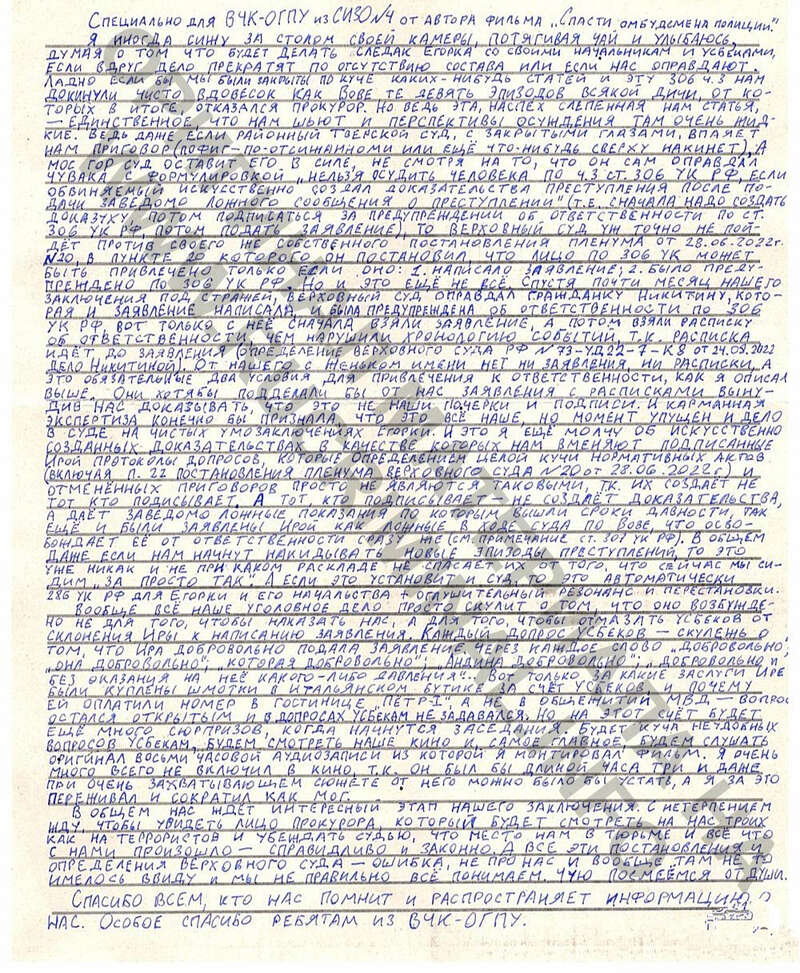 Специально для ВЧК-ОГПУ из СИЗО №4 от автора фильма „Спасти омбудсмена полиции."
Я иногда сижу за столом своей камеры, потягивая чай и улыбаюсь,
думая о том что будет делать следак Егорка со своими начальникам и усбеками,
если вдруг дело прекратят по отсутствию состава или если нас оправдают.
Ладно если бы мы были закрыты по куче каких-нибудь статей и эту 306 ч.3 нам
докинули чисто вдовесок как Вове те девять эпизодов всякой дичи, от ко-
торых в итоге, отказался прокурор. Но ведь эта, наспех слепенная нам статья,
— единственное, что нам шьют и перспективы осуждения там очень жид-
кие. Ведь даже если районный Тверской суд, с закрытыми глазами, впаяет
нам приговор (пофиг-по-отсижанноми или ещё что-нибудь сверху накинет), а
Мос гор суд оставит его в силе, не смотря на то, что он сам оправдал
чувака с формулировкой „нельзя осудить человека по ч.3 ст. 306 УК РФ, если
обвиняемый искусственно создал доказательства преступления после по-
дачи заведомо ложного сообщения о преступлении" (т.е. сначала надо создать
доказуху, потом подписаться за предупреждении об ответственности по ст.
306 УК РФ, потом подать заявление), то Верховный суд уж точно не пой-
дёт против своего же собственного постановления пленума от 28.06.2022г.
№20, в пункте 20 которого он постановил, что лицо по 306 УК может
быть привлечено только если оно: 1. написало заявление; 2. было преду-
преждено по 306 УК РФ. Но и это ещё не всё. Спустя почти месяц нашего
заключения под стражей, Верховный суд оправдал гражданку Никитину, кото-
рая и заявление написала, и была предупреждена об ответственности по 306
УК РФ, вот только с неё сначала взяли заявление, а потом взяли расписку
об ответственности, чем нарушили хронологию событий, т.к. расписка
идёт до заявления (определение Верховного суда РФ №73-УД22-7-К8 от 24.09.2022
дело Никитиной). От нашего с Женьком имени нет ни заявления, ни расписки, а
это обязательные два условия для привлечения к ответственности, как я описал
выше. Они хотябы подделали бы от нас заявления с расписками выну-
див нас доказывать, что это не наши почерки и подписи и карманная
экспертиза конечно бы признала, что это всё наше, но момент упущен и дело
в суде на чистых умозаключениях Егорки. И это я ещё молчу об искусственно
созданных доказательствах, в качестве которых нам вменяют подписанные
Ирой протоколы допросов, которые определением целой кучи нормативных актов
(включая п. 22 постановления пленума Верховного суда №20 от 28.06.2022г) и
отменённых приговоров просто не являются таковыми, т.к. их создаёт не
тот кто подписывает. А тот, кто подписывает — не создаёт доказательства,
а даёт заведомо ложные показания по которым вышли сроки давности, так
ещё и были заявлены Ирой как ложные в ходе суда по Вове, что осво-
бождает её от ответственности сразу же (см примечание ст. 307 УК РФ). В общем
даже если нам начнут накидывать новые эпизоды преступлений, то это
уже никак и не при каком раскладе не спасает их от того, что сейчас мы си-
дим „за просто так". А если это установит и суд, то это автоматически
286 УК РФ для Егорки и его начальства + оглушительный резонанс и перестановки.
Вообще всё наше уголовное дело просто скулит о том, что оно возбужде-
но не для того, чтобы наказать нас, а для того, чтобы отмазать усбеков от
склонения Иры к написанию заявления. Каждый допрос усбеков — скулёжь о
том, что Ира добровольно подала заявление через каждое слово „добровольно;
„она добровольно"; „которая добровольно"; „Андина добровольно"; „добровольно и
без оказания на неё какого-либо давления"... Вот только за какие заслуги Ире
были куплены шмотки в итальянском бутике за счёт усбеков и почему
ей оплатили номер в гостинице „Пётр-I", а не в общежитии МВД — вопрос
остался открытым и в допросах усбекам не задавался. Но на этот счёт будет
ещё много сюрпризов, когда начнутся заседания. Будет куча неудобных
вопросов усбекам, будем смотреть наше кино и, самое главное, будем слушать
оригинал восьми часовой аудиозаписи из которой я монтировал фильм. Я очень
много всего не включил в кино, т.к. он был бы длиной часа три и даже
при очень захватывающем сюжете от него можно было бы устать, а я за это
переживал и сократил как мог.
В общем нас ждёт интересный этап нашего заключения. С нетерпением
жду, чтобы увидеть лицо прокурора, который будет смотреть на нас троих
как на террористов и убеждать судью, что место нам в тюрьме и всё что
с нами произошло — справидливо и законно. А все эти постановления и
определения Верховного суда — ошибка, не про нас и вообще там не то
имелось ввиду и мы не правильно всё понимаем. Чую посмеёмся от души.
Спасибо всем, кто нас помнит и распространяет информацию о
нас. Особое спасибо ребятам из ВЧК-ОГПУ.